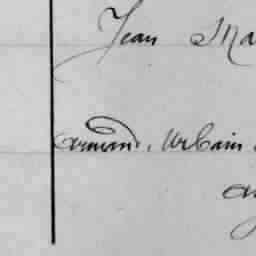 Jean Ma
Armand, Urbain